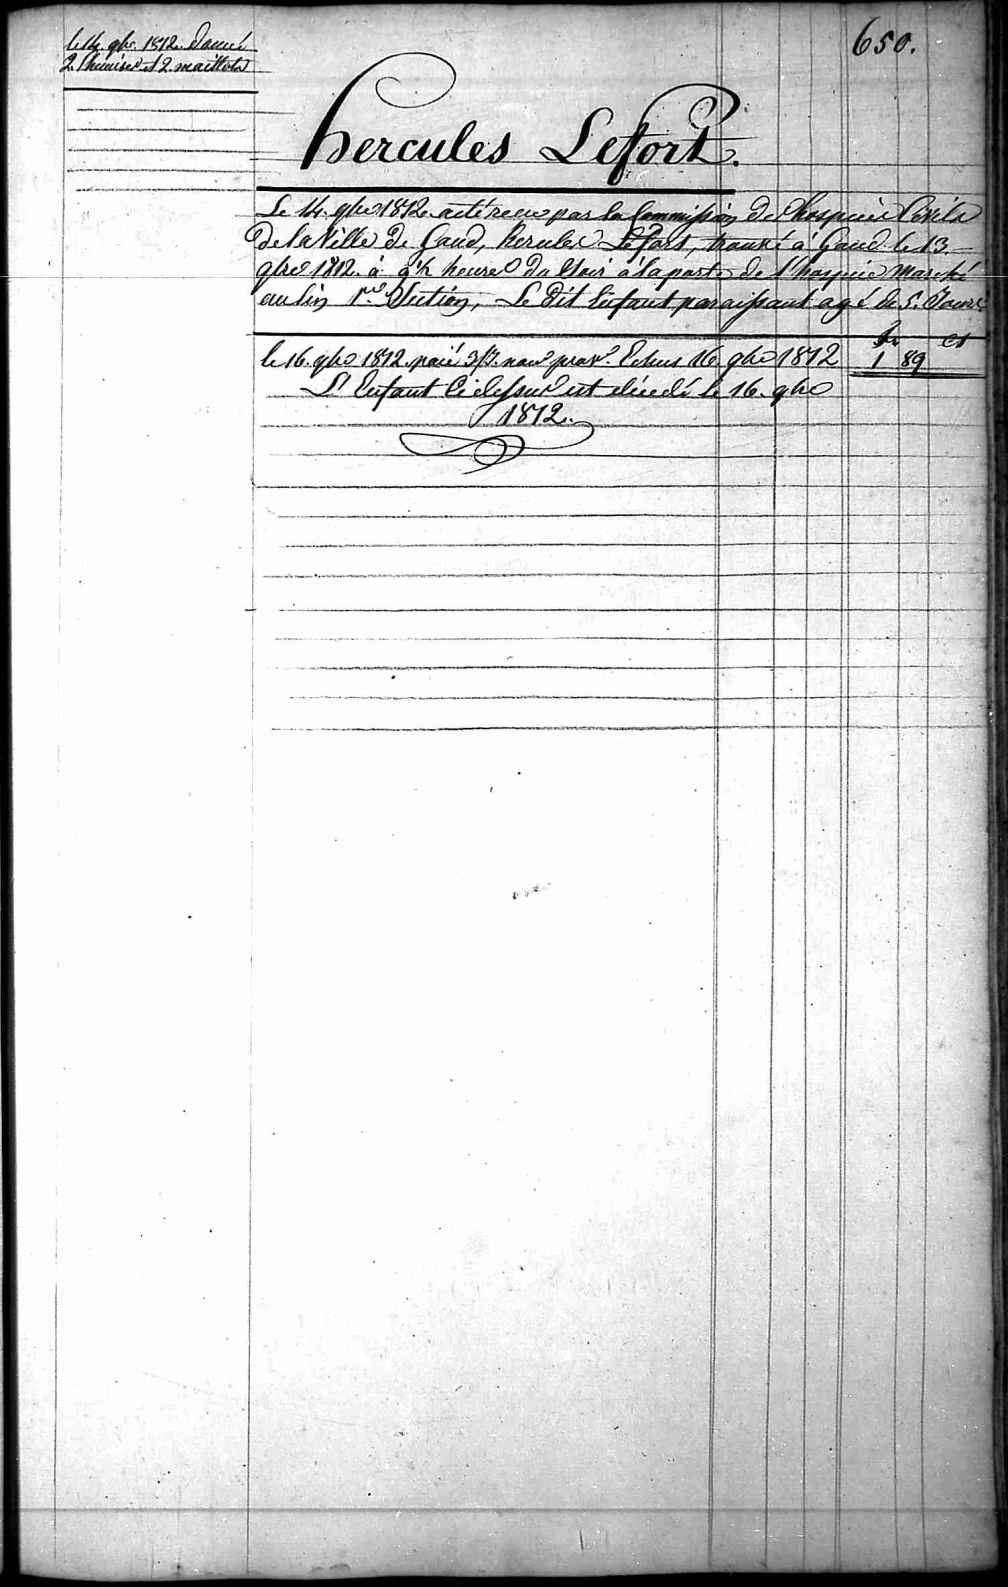 650.
le 14. 9bre 1812. donné
2 Chemises et 2. maillots
Hercules Lefort.
Le 14. 9bre 1812. acté recu par la Commission des hospices Civils
de la Ville de Gand, hercules Lefort, trouvé à Gand le 13
9bre 1812. à heures du Soir à la porte de l'hospice marché
au lin 1re Section, Le dit Enfant paraissant agé de 5. Jours
fr cs
le 16. 9bre 1812. paié 3 Echus 16. 9bre 1812 1 89
L'Enfant Ci dessus est décédé le 16. 9bre
1812.